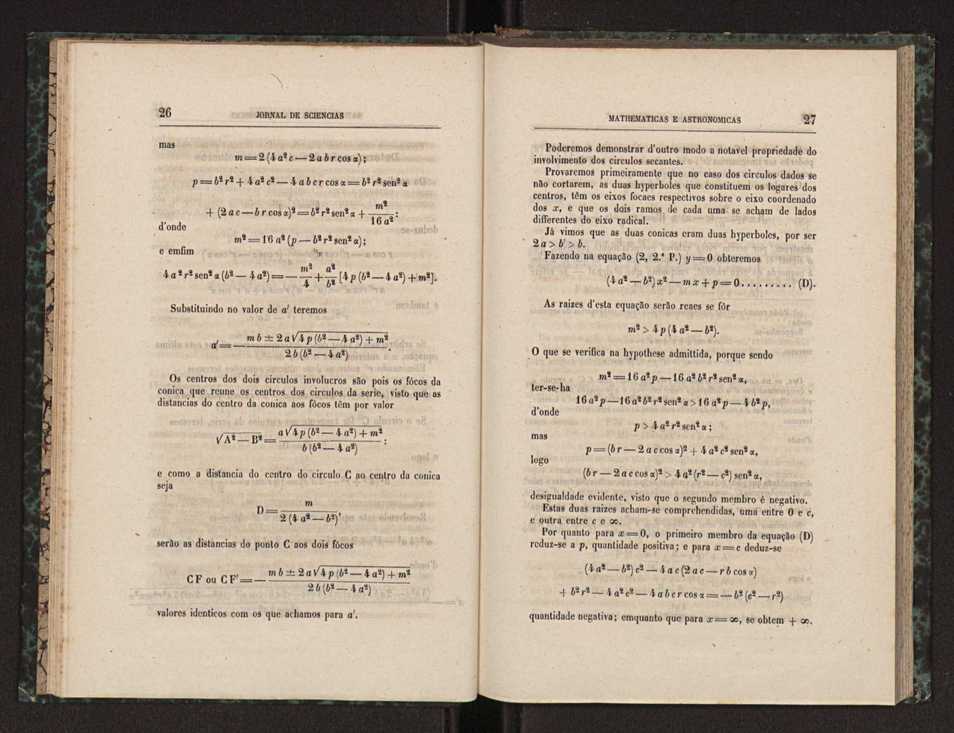 26 JORNAL DE SCIENCIAS
mas
m = 2 (4 a² c — 2 a b r cos α);
p = b² r² + 4 a² c² — 4 a b c r cos α = b² r² sen² α
+ (2 a c — b r cos α)² = b² r² sen² α + m² / 16 a² :
d'onde
m² = 16 a² (p — b² r² sen² α);
e emfim
4 a² r² sen² α (b² — 4 a²) = — m² / 4 + a² / b² [4 p (b² — 4 a²) + m²].
Substituindo no valor de a' teremos
a' = — m b ± 2 a √4 p (b² — 4 a²) + m² / 2 b (b² — 4 a²) .
Os centros dos dois circulos involucros são pois os fócos da
conica que reune os centros dos circulos da serie, visto que as
distancias do centro da conica aos fócos têm por valor
√A² — B² = a √4 p (b² — 4 a²) + m² / b (b² — 4 a²) :
e como a distancia do centro do circulo C ao centro da conica
seja
D = m / 2 (4 a² — b²) ,
serão as distancias do ponto C aos dois fócos
CF ou CF' = — m b ± 2 a √4 p (b² — 4 a²) + m² / 2 b (b² — 4 a²)
valores identicos com os que achamos para a'.
MATHEMATICAS E ASTRONOMICAS 27
Poderemos demonstrar d'outro modo a notavel propriedade do
involvimento dos circulos secantes.
Provaremos primeiramente que no caso dos circulos dados se
não cortarem, as duas hyperboles que constituem os logares dos
centros, têm os eixos focaes respectivos sobre o eixo coordenado
dos x, e que os dois ramos de cada uma se acham de lados
differentes do eixo radical.
Já vimos que as duas conicas eram duas hyperboles, por ser
2 a > b' > b.
Fazendo na equação (2, 2.ª P.) y = 0 obteremos
(4 a² — b²) x² — m x + p = 0......... (D).
As raizes d'esta equação serão reaes se fôr
m² > 4 p (4 a² — b²).
O que se verifica na hypothese admittida, porque sendo
m² = 16 a² p — 16 a² b² r² sen² α,
ter-se-ha
16 a² p — 16 a² b² r² sen² α > 16 a² p — 4 b² p,
d'onde
p > 4 a² r² sen² α ;
mas
p = (b r — 2 a c cos α)² + 4 a² c² sen² α,
logo
(b r — 2 a c cos α)² > 4 a² (r² — c²) sen² α,
desigualdade evidente, visto que o segundo membro é negativo.
Estas duas raizes acham-se comprehendidas, uma entre 0 e c,
e outra entre c e ∞.
Por quanto para x = 0, o primeiro membro da equação (D)
reduz-se a p, quantidade positiva; e para x = c deduz-se
(4 a² — b²) c² — 4 a c (2 a c — r b cos α)
+ b² r² — 4 a² c² — 4 a b c r cos α = — b² (c² — r²)
quantidade negativa; emquanto que para x = ∞, se obtem + ∞.